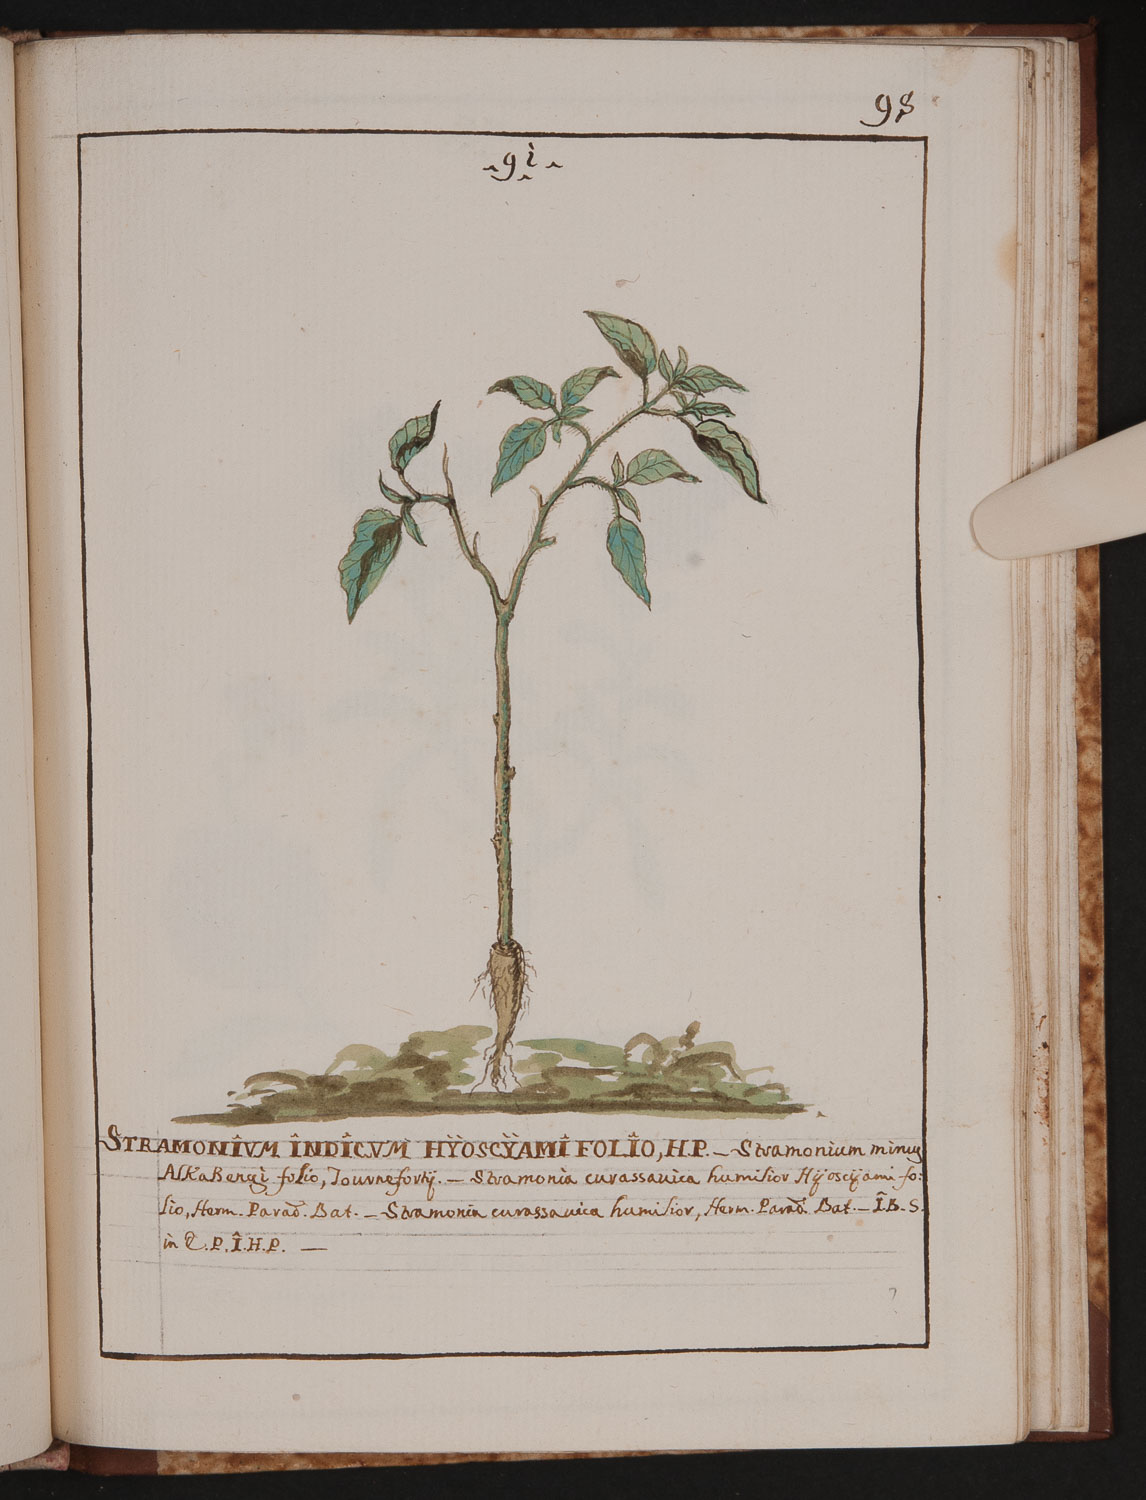 98
91
STRAMONÎVM ÎNDÎCVM HŸOSCŸAMÎ FOLÎO, H.P. — Stramonium minus
AlKaKengi folio, Tournefortij. — Stramonia curassauica humilior Hÿoscÿami fo:
lio, Herm. Parad. Bat. — Stramonia curassauica humilior, Herm. Parad. Bat. — Î.B.S.
in C.P.Î.H.P. —